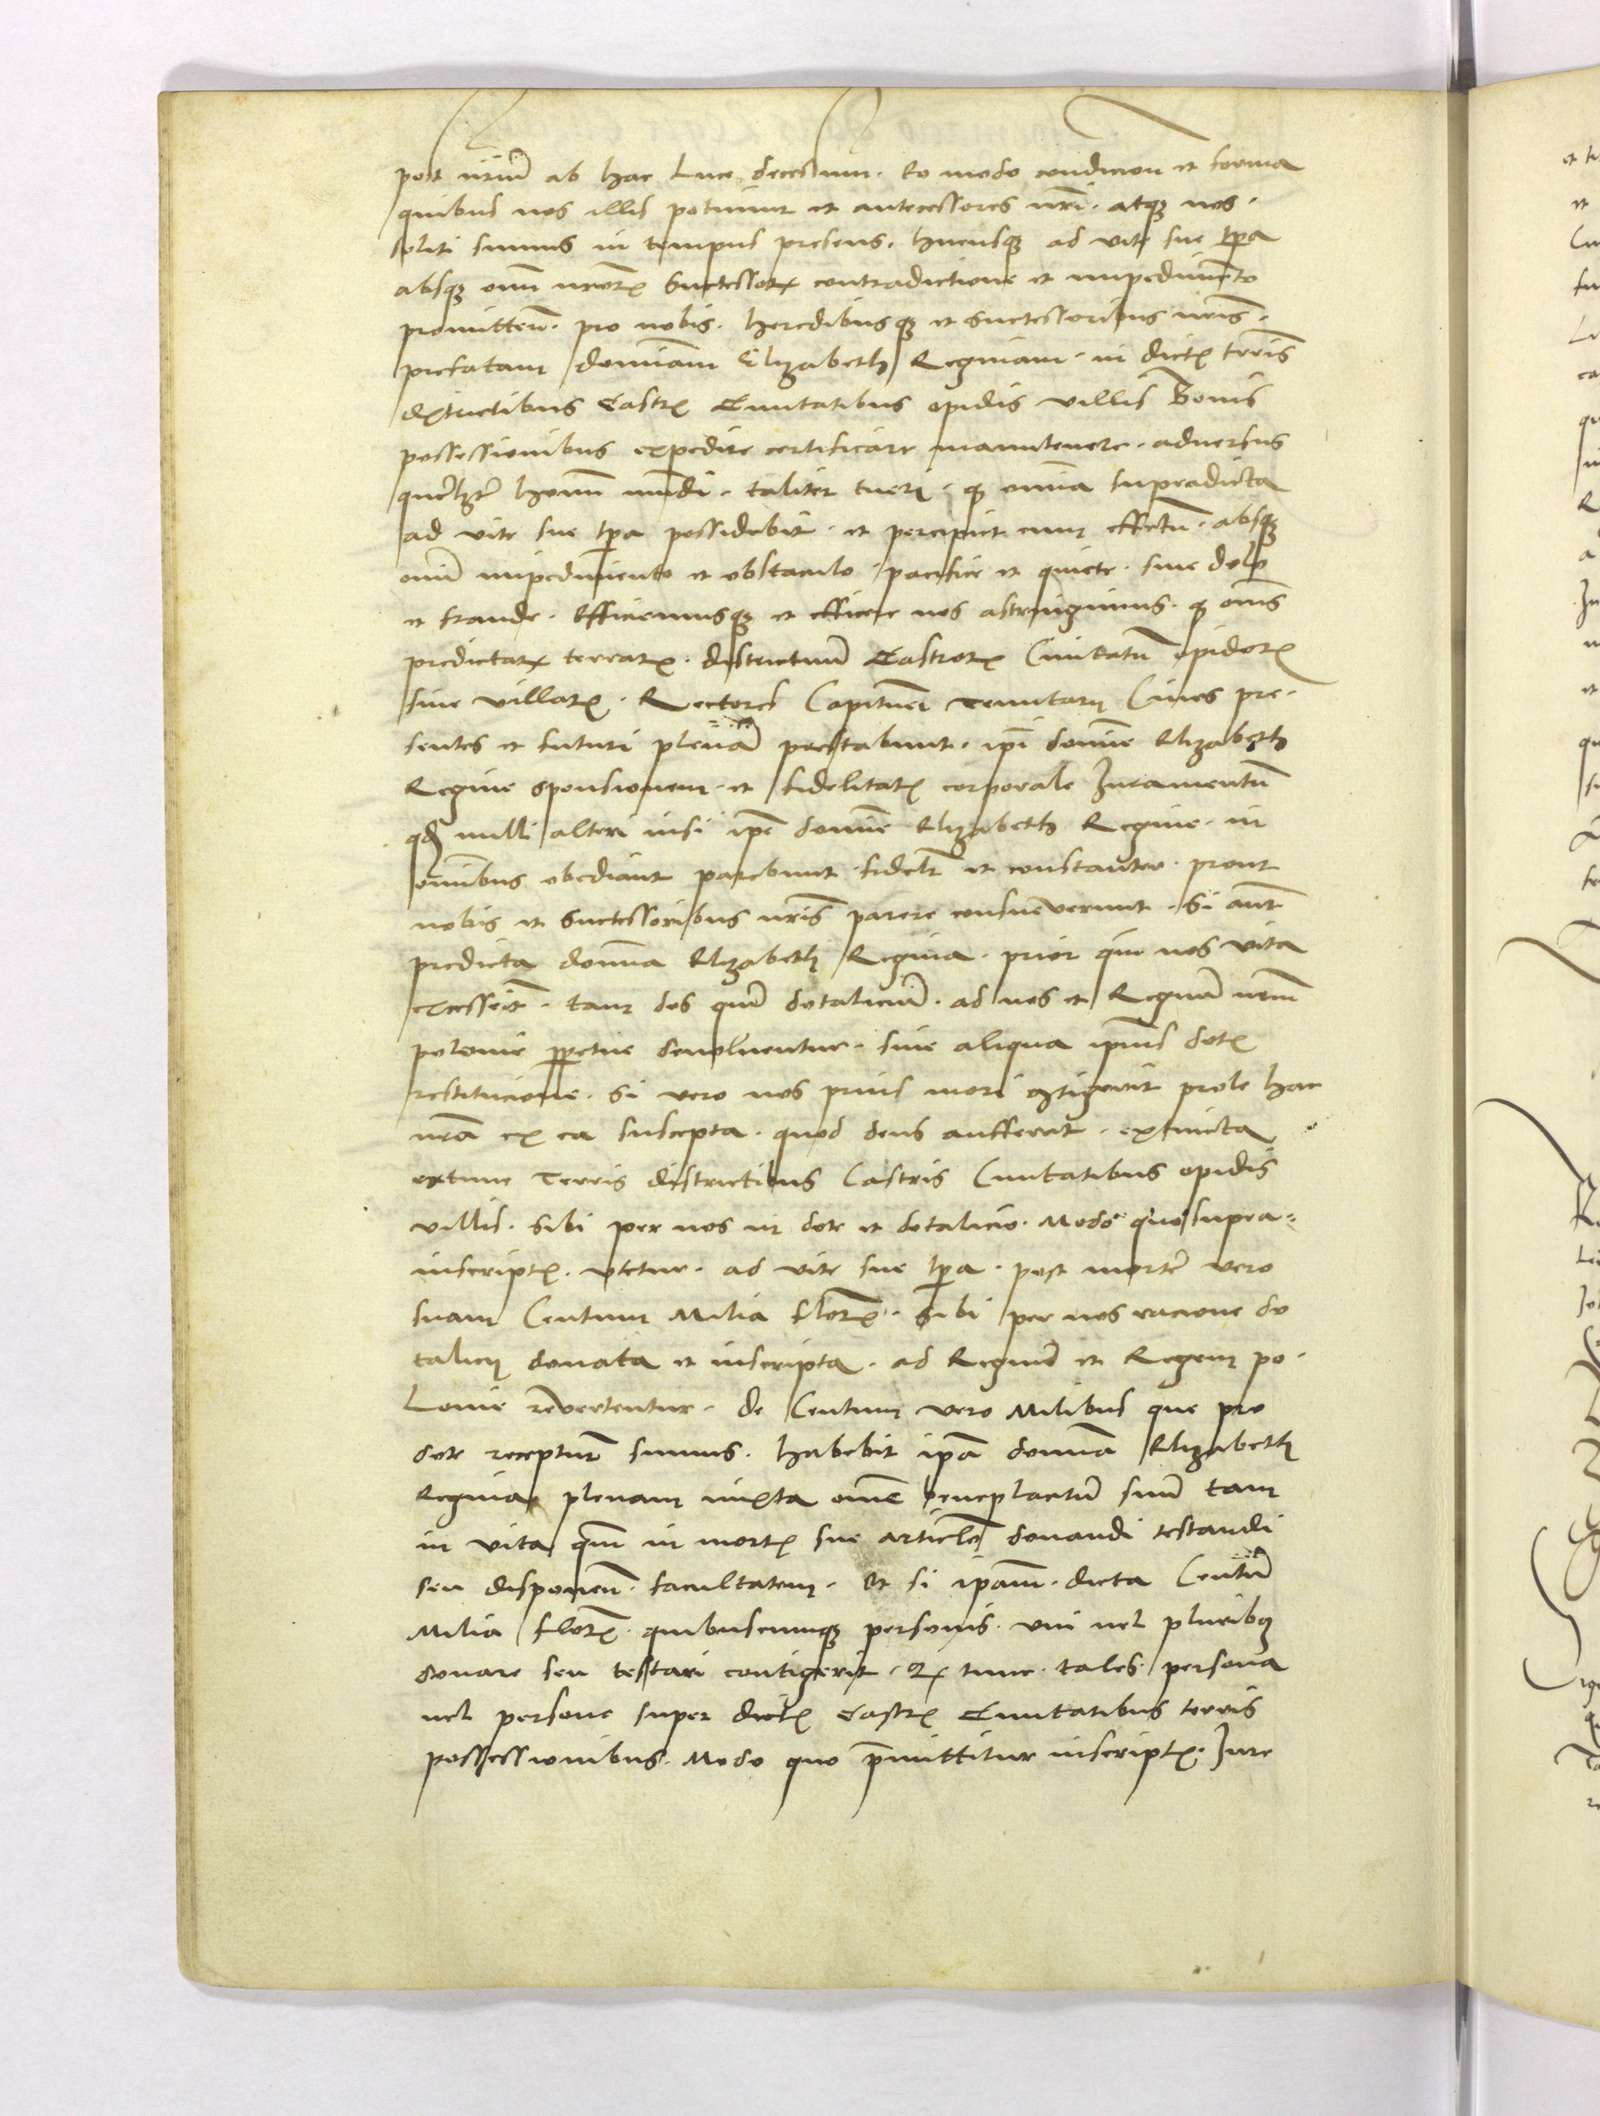 post nrm̄ ab hac Luce decessum. Eo modo condicion et forma
quibus nos illis potimur et antecessores nr̄i. atq3 nos.
soliti sumus in tempus presens. hucusq3 ad vite sue tp̄a
absq3 omni nr̄oꝝ Successoꝝ contradictione et impedimēto
promitteñ. pro nobis. heredibusq3 et Successoribus nr̄is.
prefatam domīam Elizabeth Reginam. in dictꝭ terris
districtibus Castrꝭ Ciuitatibus opidis villis Bonis
possessionibus expedire certificare manutenere. aduersus
quēlꝫt hom̄ mūdi. taliter tueri. ꝙ omīa supradicta
ad vite sue tp̄a possidebit. et percipiet cum effectu. absq3
omī impedimento et obstaculo pacifice et quiete. sine dolo
et fraude. Efficiemusq3 et efficere nos astringimus. ꝙ om̄s
predictaꝝ terraꝝ. districtuū Castroꝝ Ciuitatū opidoꝝ
siue villaꝝ. Rectores Capitnei Tenutarij Ciues pre-
sentes et futuri plenā prestabunt. ip̄i domīe Elizabeth
Regine sponsionem. et fidelitatꝭ corporale Iuramentū
qd̄ nulli alteri nisi ip̄e domīe Elizabeth Regine. in
omībus obediant parebunt fidelr̄ et constanter. prout
nobis et Successoribus nr̄is parere consueuerunt. Si aūt
predicta domīa Elizabeth Regina. prior q̄ nos vita
excesserit. tam dos quā dotaliciū. ad nos et Regnū nrm̄
polonie ꝑpetue deuoluentur. sine aliqua ip̄ius dotꝭ
restitucione. Si vero nos prius mori ꝯtigerit prole hac
nrā ex ea suscepta. quod deus aufferat. extincta
extunc Terris districtibus Castris Ciuitatibus opidis
villis. sibi per nos in dote et dotalicio. Modo quo supra-
inscriptꝭ. vtetur. ad vite sue tp̄a. post mortē vero
suam Centum Milia floꝝ. sibi per nos racione do
talicij donata et inscripta. ad Regnū et Regem po-
Lonie reuertentur. de Centum vero Milibus que pro
dote recepturi sumus. habebit ip̄a domīa Elizabeth
Regina plenam iuxta om̄e beneplacitū suū tam
in vita q̄m in mortꝭ sue articlo donandi testandi
seu disponeñ. facultatem. Et si ip̄am. dicta Centū
Milia floꝝ. quibuscumq3 personis. vni uel pluribꝫ
donare seu testari contigerit. Ex tunc. tales persona
uel persone super dictꝭ Castrꝭ Ciuitatibus terris
possessionibus. Modo quo p̄mittitur inscriptꝭ. Iure